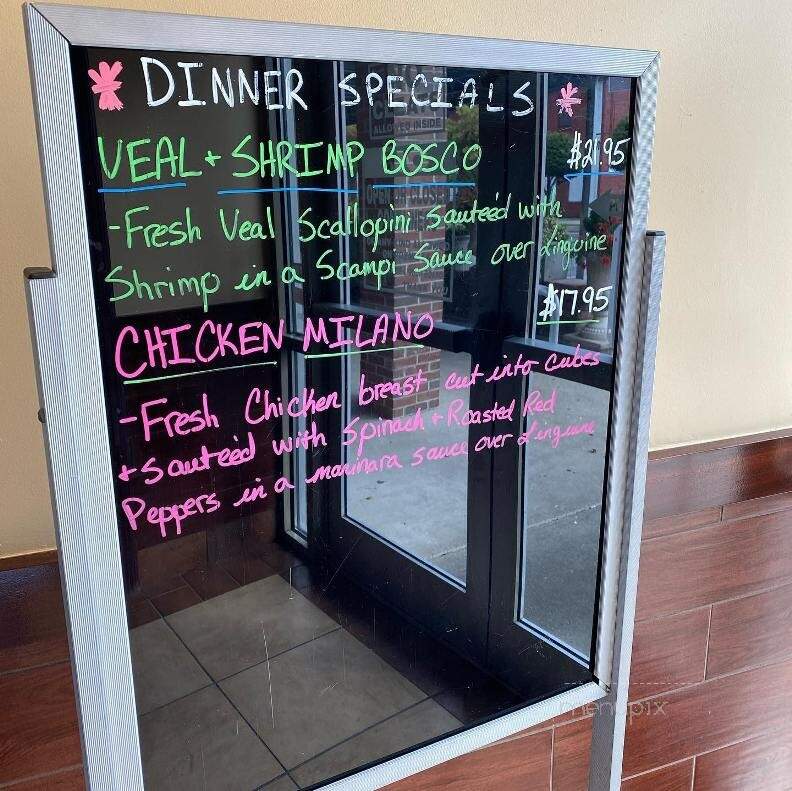 DINNER SPECIALS
VEAL + SHRIMP BOSCO $21.95
-Fresh Veal Scallopini Sauteéd with
Shrimp in a Scampi Sauce over Linguine
CHICKEN MILANO $17.95
-Fresh Chicken breast cut into cubes
+ Sauteéd with Spinach + Roasted Red
Peppers in a marinara sauce over Linguine
ALLOWED INSIDE
menupix